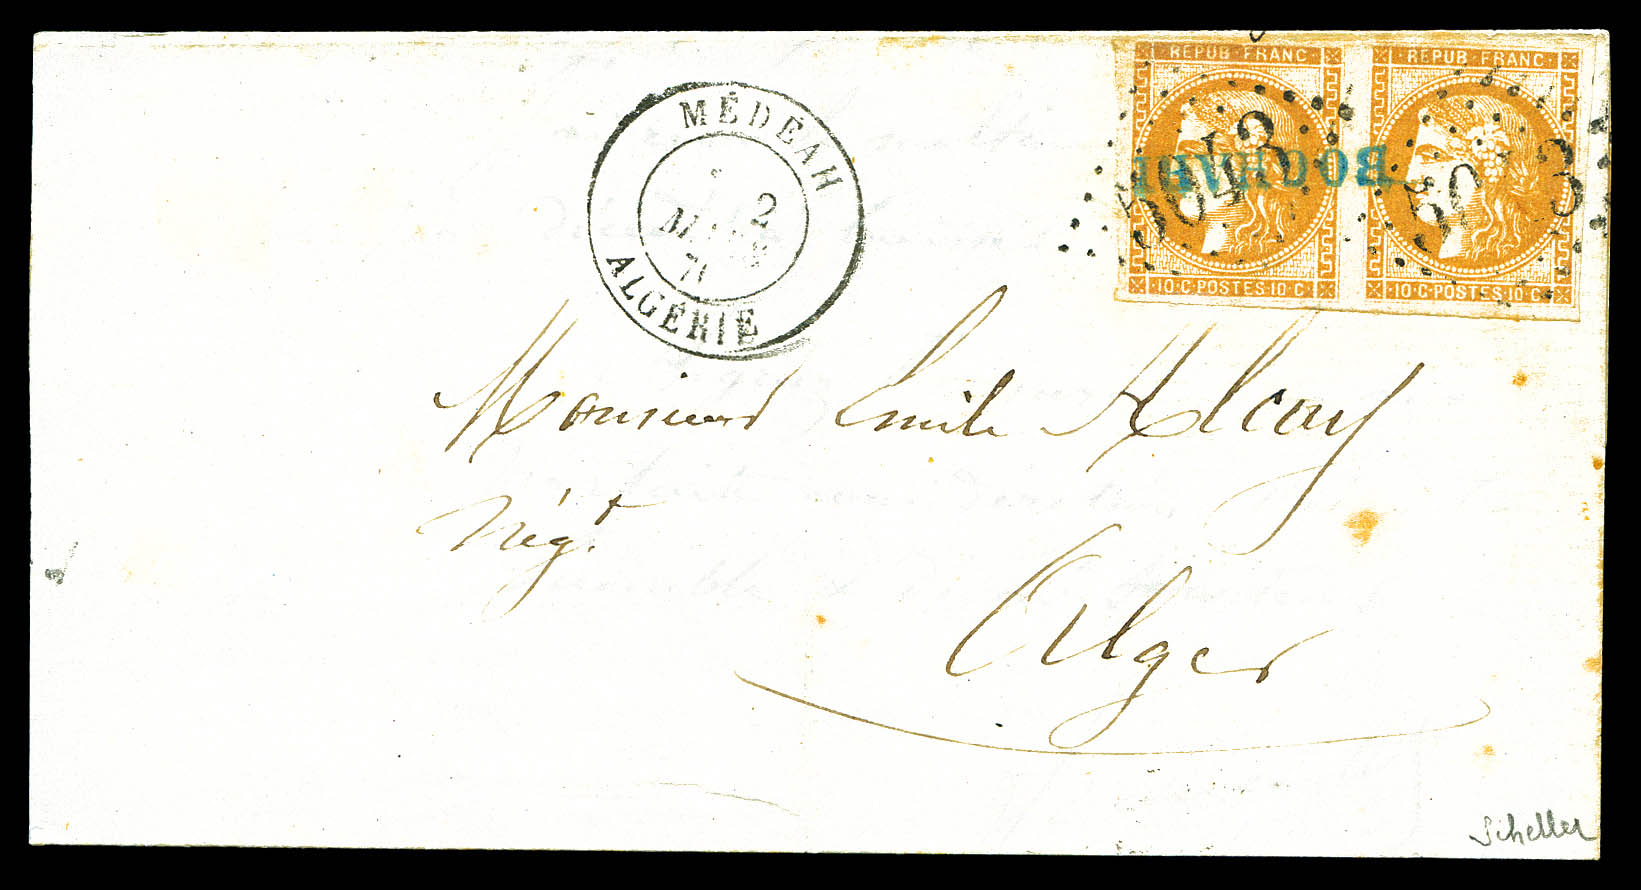 REPUB·FRANC·
REPUB·FRANC·
5043
5043
BOGHARI
·10·C·POSTES·10 C·
·10·C·POSTES·10 C·
MÉDÉAH
2
MARS
71
ALGÉRIE
Monsieur Emile Alcay
Négt
Alger
Scheller